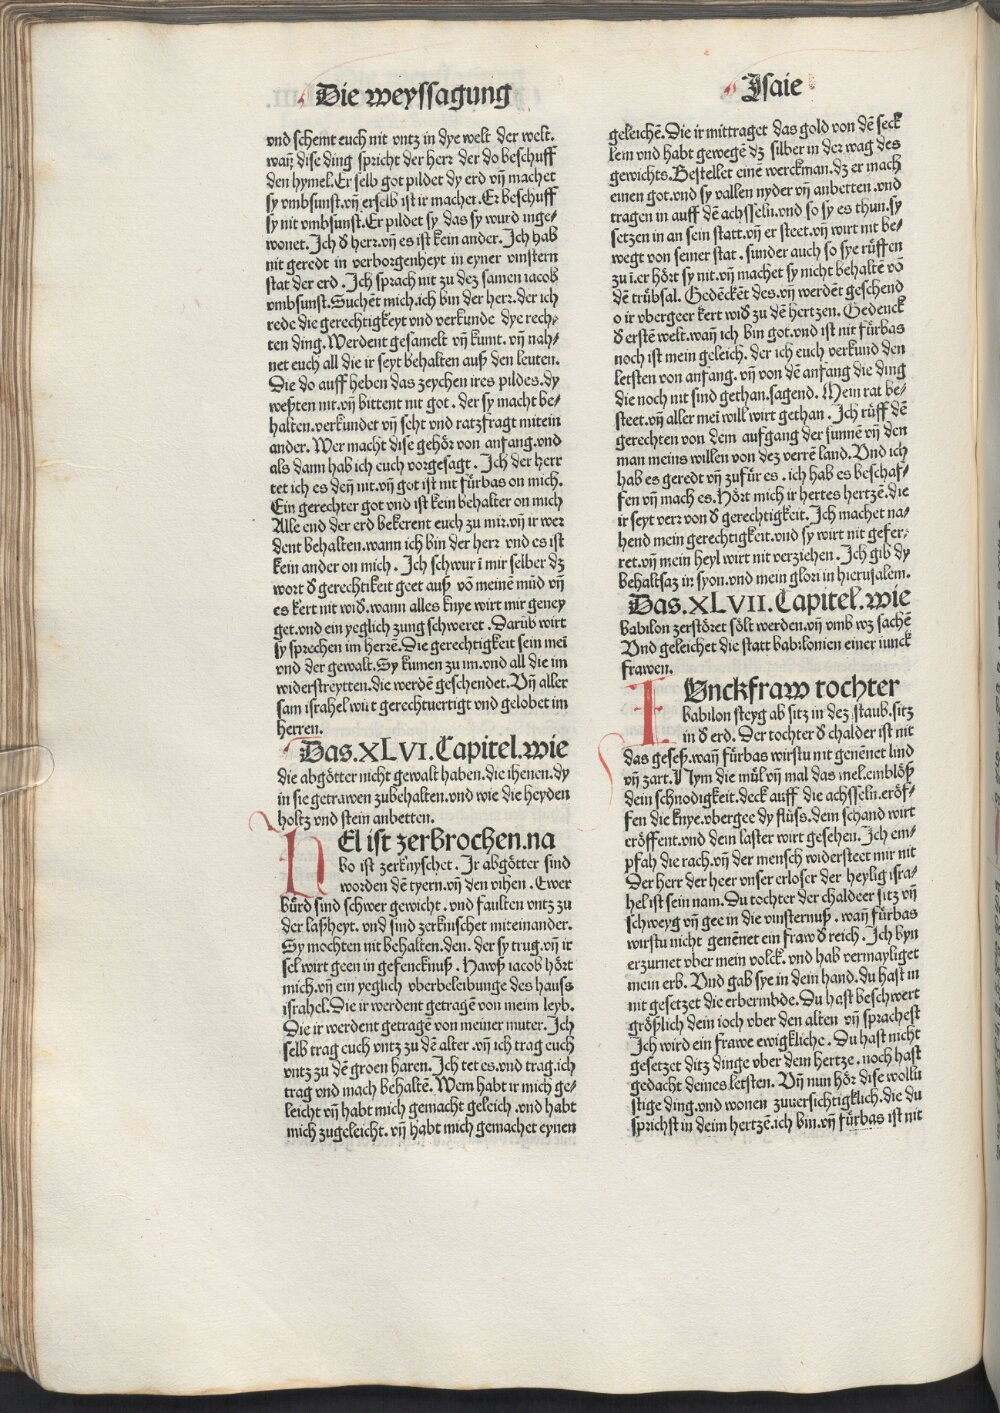 Die weyssagung
Isaie
vnd schemt euch nit vntz in dye welt der welt.
wañ dise ding spricht der herr der do beschuff
den hymel. Er selb got pildet dy erd vñ machet
sy vmbsunst. vñ erselb ist ir macher. Er beschuff
sy nit vmbsunst. Er pildet sy das sy wurd inge⸗
wonet. Ich d̕ herr. vñ es ist kein ander. Ich hab
nit geredt in verborgenheyt in eyner vinstern
stat der erd. Ich sprach nit zu dez samen iacob
vmbsunst. Suchēt mich. ich bin der herr. der ich
rede die gerechtigkeyt vnd verkunde dye rech⸗
ten ding. Werdent gesamelt vñ kumt. vñ nah⸗
net euch all die ir seyt behalten auß den leuten.
Die do auff heben das zeychen ires pildes. dy
weßten nit. vñ bittent nit got. der sy macht be⸗
halten. verkundet vñ seht vnd ratzfragt mitein
ander. Wer macht dise gehör von anfang. vnd
als dann hab ich euch vorgesagt. Ich der herr
tet ich es deñ nit. vñ got ist nit fürbas on mich.
Ein gerechter got vnd ist kein behalter on mich
Alle end der erd bekerent euch zu mir. vñ ir wer
dent behalten. wann ich bin der herr vnd es ist
kein ander on mich. Ich schwur ī mir selber dz
wort d̕ gerechtikeit geet auß vō meinē mūd vñ
es kert nit wid̕. wann alles knye wirt mir geney
get. vnd ein yeglich zung schweret. Darūb wirt
sy sprechen im herrē. Die gerechtigkeit sein meī
vnd der gewalt. Sy kumen zu im. vnd all die im
widerstreytten. die werdē geschendet. Vñ aller
sam israhel wirt gerechtuertigt vnd gelobet im
herren.
Das. XLVI. Capitel. wie
die abgötter nicht gewalt haben. die ihenen. dy
in sie getrawen zubehalten. vnd wie die heyden
holtz vnd stein anbetten.
BEl ist zerbrochen. na
bo ist zerknyschet. Ir abgötter sind
worden dē tyern. vñ den vihen. Ewer
bürd sind schwer gewicht. vnd faulten vntz zu
der laßheyt. vnd sind zerknischet miteinander.
Sy mochten nit behalten. den. der sy trug. vñ ir
sel wirt geen in gefencknuß. Hawß iacob hört
mich. vñ ein yeglich vberbeleibunge des hauss
israhel. Die ir werdent getragē von meim leyb.
Die ir werdent getragē von meiner muter. Ich
selb trag euch vntz zu dē alter. vñ ich trag euch
vntz zu dē groen haren. Ich tet es. vnd trag. ich
trag vnd mach behaltē. Wem habt ir mich ge⸗
leicht vñ habt mich gemacht geleich. vnd habt
mich zugeleicht. vñ habt mich gemachet eynen
geleichē. Die ir mittraget das gold von dē seck
lein vnd habt gewegē dz silber in der wag des
gewichts. Bestellet eine werckman. dz er mach
einen got. vnd sy vallen nyder vñ anbetten. vnd
tragen in auff dē achsseln. vnd so sy es thun. sy
setzen in an sein statt. vñ er steet. vñ wirt nit be⸗
wegt von seiner stat. sunder auch so sye rüffen
zu ī. er hört sy nit. vñ machet sy nicht behaltē vō
dē trübsal. Gedēckēt des. vñ werdēt geschend
o ir vbergeer kert wid̕ zu dē hertzen. Gedenck
d̕ erstē welt. wañ ich bin got. vnd ist nit fürbas
noch ist mein geleich. der ich euch verkund den
letsten von anfang. vñ von dē anfang die ding
die noch nit sind gethan. sagend. Mein rat be⸗
steet. vñ aller meī will wirt gethan. Ich rüff dē
gerechten von dem aufgang der sunnē vñ den
man meins willen von dez verrē land. Vnd ich
hab es geredt vñ zufür es. ich hab es beschaf⸗
fen vñ mach es. Hört mich ir hertes hertzē. die
ir seyt verr von d̕ gerechtigkeit. Ich machet na⸗
hend mein gerechtigkeit. vnd sy wirt nit gefer⸗
ret. vñ mein heyl wirt nit verziehen. Ich gib dy
behaltsaz in syon. vnd mein glori in hierusalem.
Das. XLVII. Capitel. wie
babilon zerstöret sölt werden. vñ vmb wz sachē
Vnd geleichet die statt babilonien einer iunck
frawen.
IVnckfraw tochter
babilon steyg ab sitz in dez staub. sitz
in d̕ erd. Der tochter d̕ chalder ist nit
das geseß. wañ fürbas wirstu nit genēnet lind
vñ zart. Nym die mül vñ mal das mel. emblöß
dein schnodigkeit. deck auff die achsseln. eröf⸗
fen die knye. vbergee dy flüss. dein schand wirt
eröffent. vnd dein laster wirt gesehen. Ich em⸗
pfah die rach. vñ der mensch widersteet mir nit
Der herr der heer vnser erloser der heylig isra⸗
hel ist sein nam. Du tochter der chaldeer sitz vñ
schweyg vñ gee in die vinsternuß. wañ fürbas
wirstu nicht genēnet ein fraw d̕ reich. Ich byn
erzurnet vber mein volck. vnd hab vermayliget
mein erb. Vnd gab sye in dein hand. du hast in
nit gesetzet die erbermbde. Du hast beschwert
größlich dein ioch vber den alten vñ sprachest
Ich wird ein frawe ewigkliche. Du hast nicht
gesetzet ditz dinge vber dem hertze. noch hast
gedacht deines letsten. Vñ nun hör dise wollu
stige ding. vnd wonen zuuersichtigklich. die du
sprichst in deim hertzē. ich bin. vñ fürbas ist nit